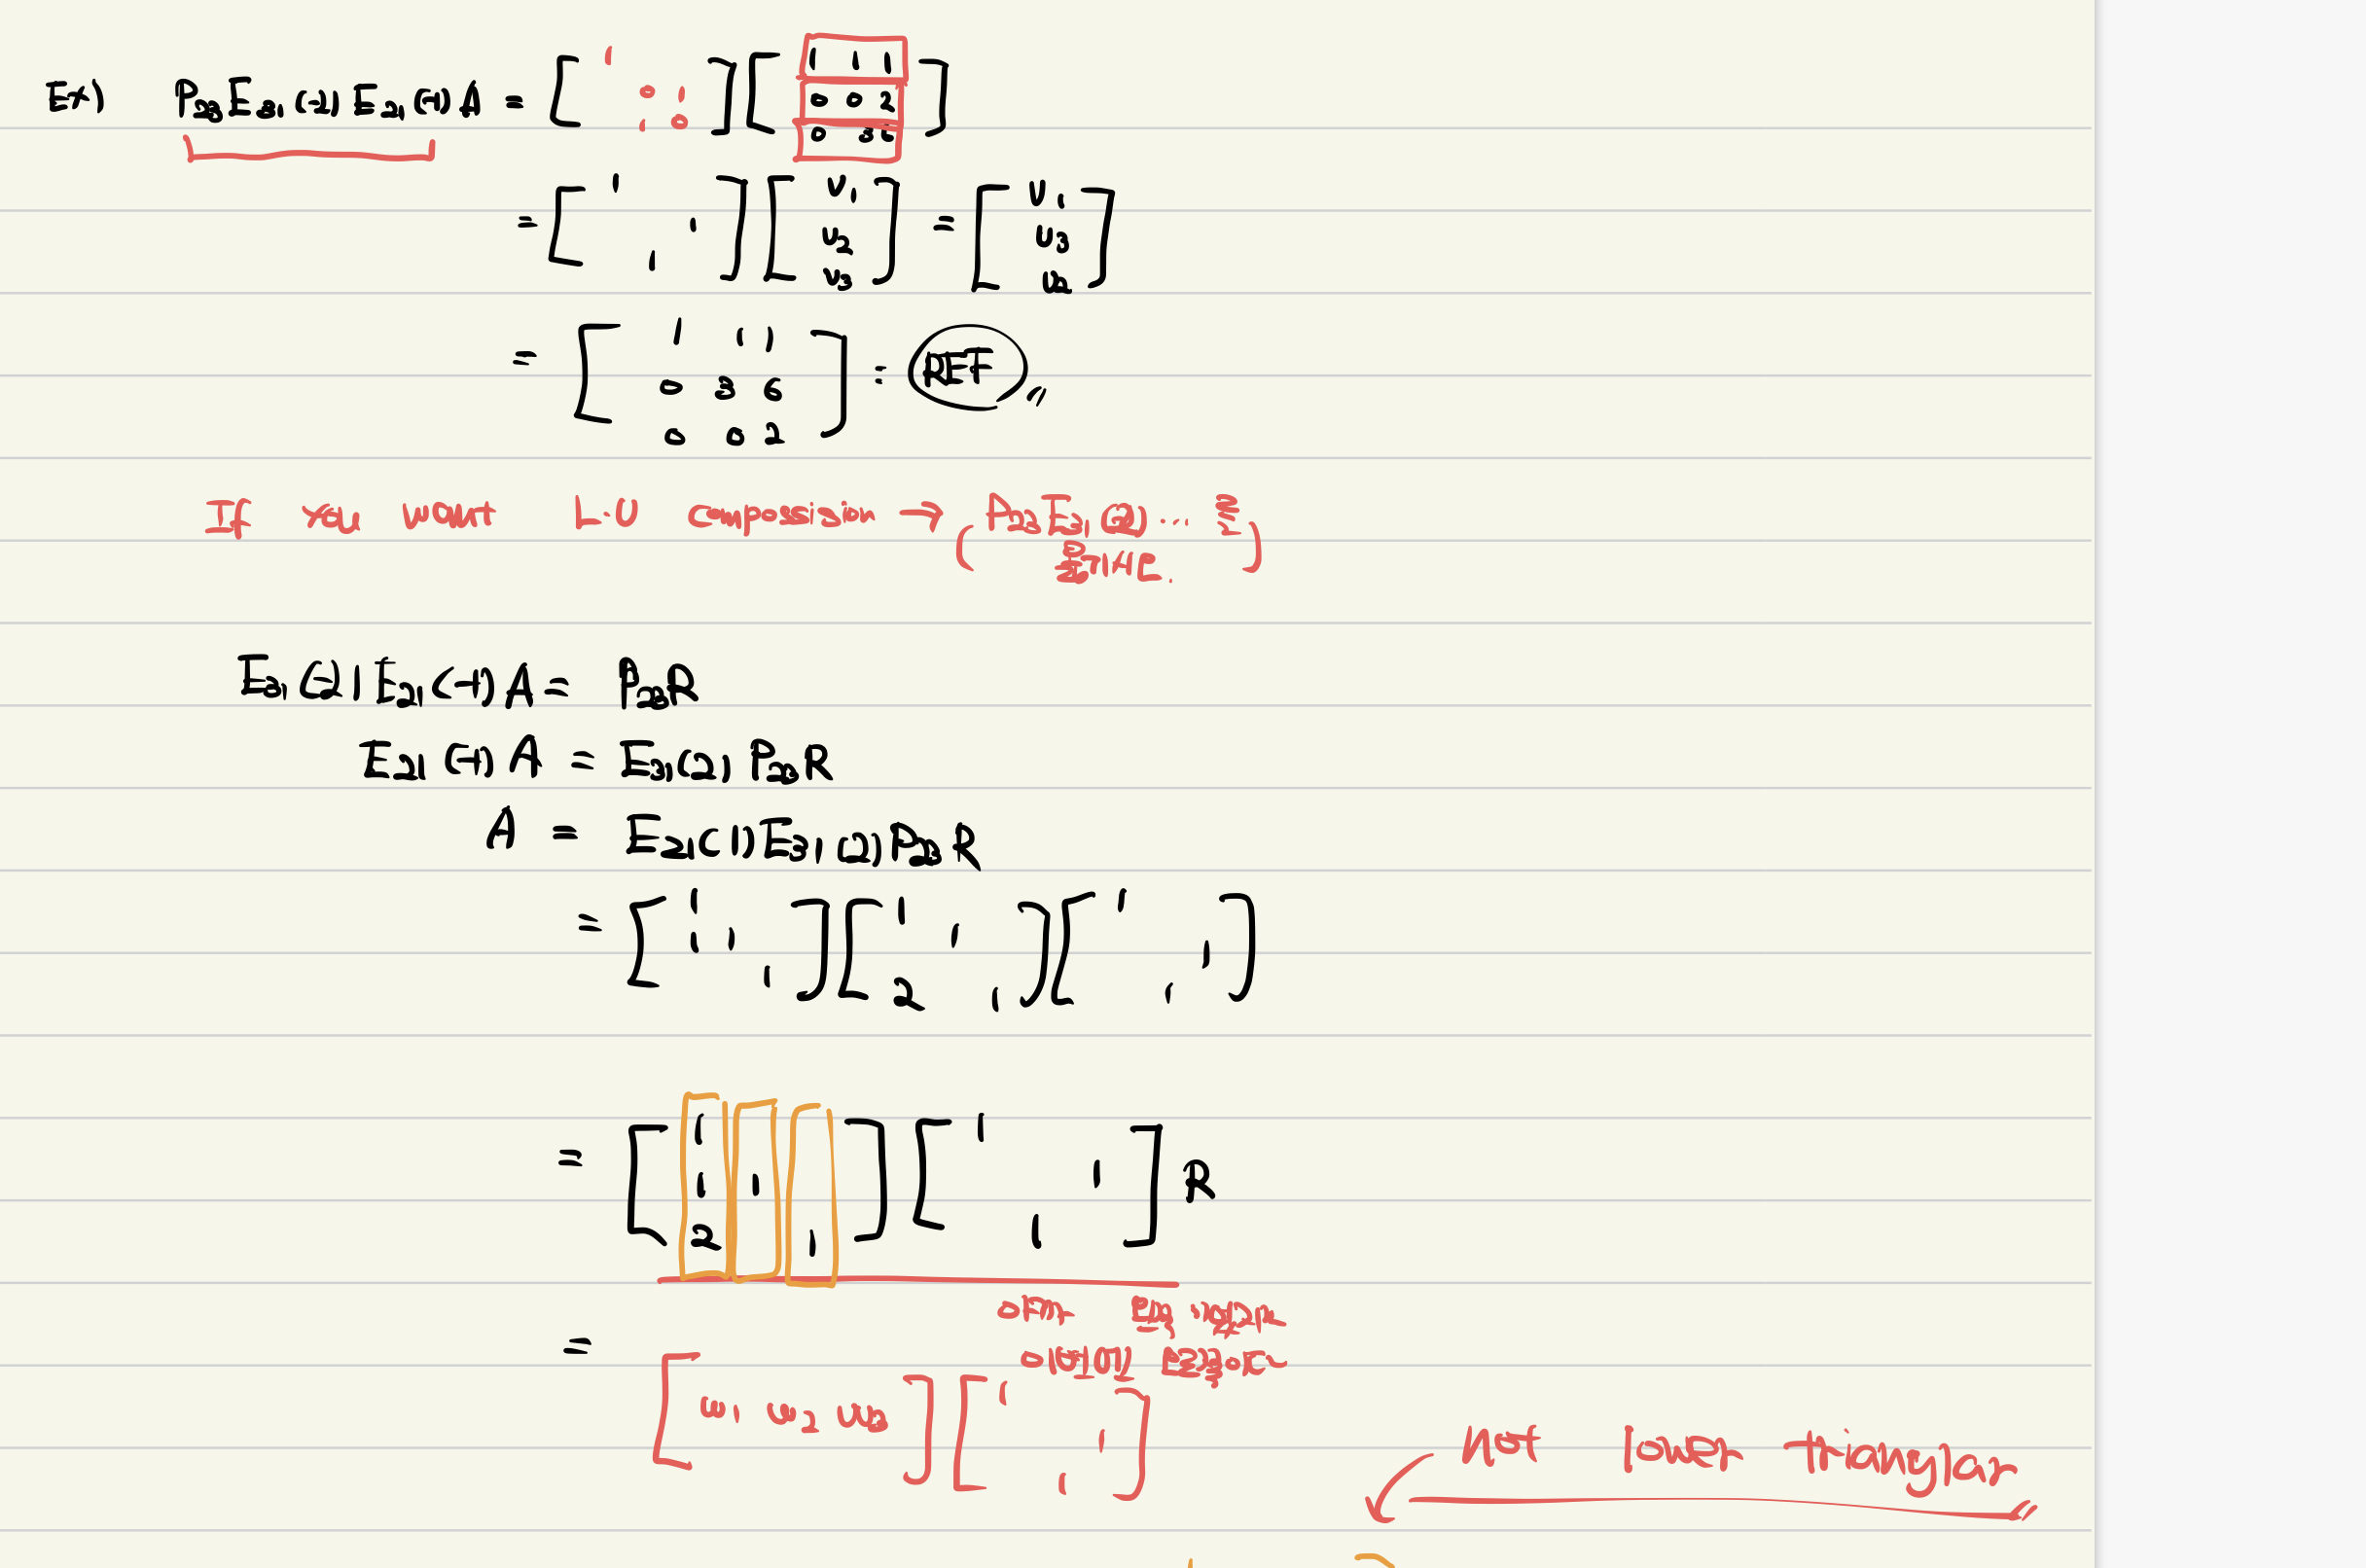 Ex) P₂₃E₃₁(-2)E₂₁(-1)A = [ 1 0 1 1 0 ] [ 1 1 1 0 0 2 0 3 6 ]
= [ 1 1 1 ] [ v₁ v₂ v₃ ] = [ v₁ v₃ v₂ ]
= [ 1 1 1 0 3 6 0 0 2 ] : REF
If you want L·U composision →
E₃₁(-2) E₂₁(-1) A = P₂₃R
E₂₁(-1) A = E₃₁(2) P₂₃R
A = E₂₁(1)E₃₁(2)P₂₃R
= [ 1 1 1 1 ] [ 1 1 2 1 ] [ 1 1 1 ]
= [ 1 1 1 2 1 ] [ 1 1 1 ] R
= [ u₁ u₂ u₃ ] [ 1 1 1 ]
Not lower trianglar